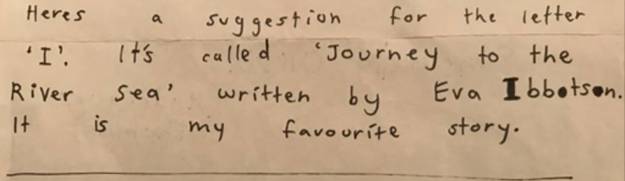 Heres a suggestion for the letter
'I'. It's called 'Journey to the
River Sea' written by Eva Ibbotson.
It is my favourite story.